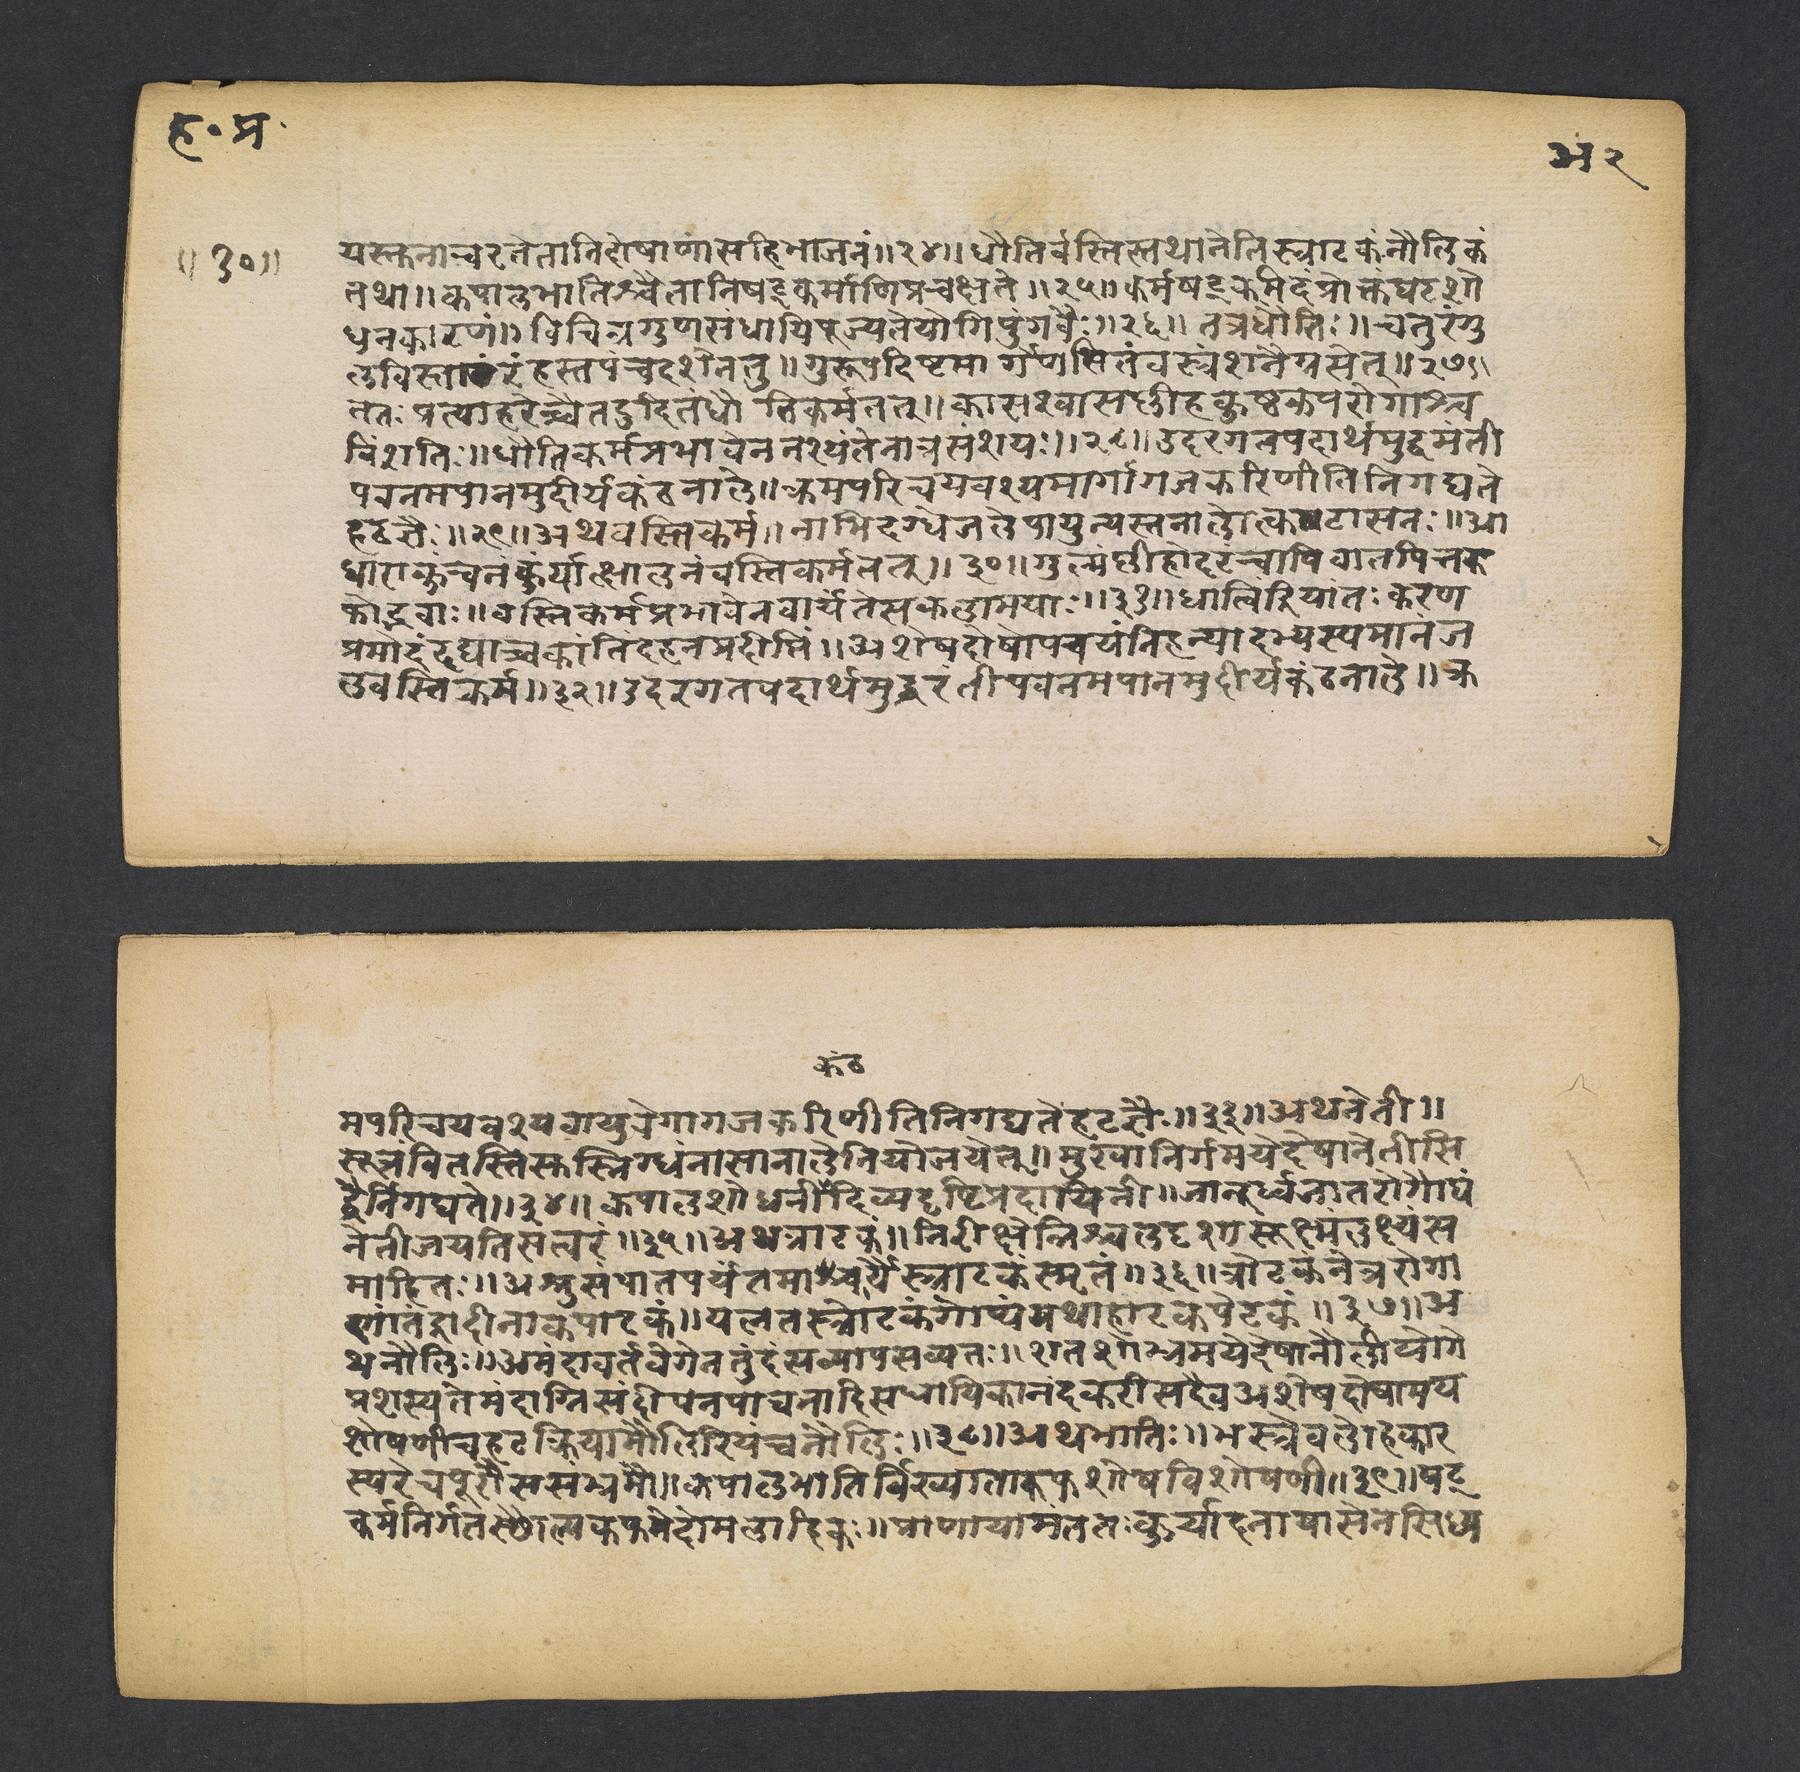 ह॰प्र॰
अं२
॥१०॥
यस्तनाचरतेतानिदोषाणांसहिभाजनं॥२४॥धौतिर्वस्तिस्तथानेतिस्त्राटकंनौलिकं
तथा॥कपालभातिश्चैतानिषट्कर्माणिप्रचक्षते॥२५॥कर्मषट्कमिदंप्रोक्तंघटशो
धनकारणं॥विचित्रगुणसंधायिपूज्यतेयोगिपुंगवैः॥२६॥तत्रधौतिः॥चतुरंगु
लविस्तारंहस्तपंचदशेनतु॥गुरूपदिष्टमार्गेणसितंवस्त्रंशनैग्रसेत्॥२७॥
ततःप्रत्याहरेच्चैतदुदितंधौतिकर्मतत्॥कासश्वासप्लीहकुष्ठकफरोगाश्च
विंशतिः॥धौतिकर्मप्रभावेननश्यंतेनात्रसंशयः॥२८॥उदरगतपदार्थमुद्वमंती
पवनमपानमुदीर्यकंठनाले॥क्रमपरिचयवश्यमार्गागजकरिणीतिनिगद्यते
हठज्ञैः॥२९॥अथवस्तिकर्म॥नाभिदग्धेजलेपायुन्यस्तनालोत्कटासनः॥आ
धाराकुंचनंकुर्यात्क्षालनंवस्तिकर्मतत्॥३०॥गुल्मप्लीहोदरंचापिवातपित्तक
फोद्भवाः॥वस्तिकर्मप्रभावेनवार्यंतेसकलामयाः॥३१॥धात्विंद्रियांतःकरण
प्रमोदंदद्याच्चकांतिंदहनप्रदीप्तिं॥अशेषदोषोपचयंनिहन्यादभ्यस्यमानंज
लवस्तिकर्म॥३२॥उदरगतपदार्थमुद्गरंतीपवनमपानमुदीर्यकंठनाले॥क्र
कंठ
मपरिचयवश्यवायुवेगागजकरिणीतिनिगद्यतेहठज्ञैः॥३३॥अथनेती॥
सूत्रंवितस्तिसुस्निग्धंनासानालेनियोजयेत्॥मुखानिर्गमयेदेषानेतीसि
द्धैर्निगद्यते॥३४॥कपालशोधनीदिव्यदृष्टिप्रदायिनी॥जात्रूर्ध्वजातरोगौघं
नेतीजयतिसत्वरं॥३५॥अथत्राटकं॥निरीक्षेन्निश्चलदृशासूक्ष्मंलक्ष्यंस
माहितः॥अश्रुसंपातपर्यंतमाचार्यैस्त्राटकंस्मृतं॥३६॥त्रोटकंनेत्ररोगा
णांतंद्रादीनांकपाटकं॥यत्नतस्त्रोटकंगोप्यंयथाहाटकपेटकं॥३७॥अ
थनौलिः॥अमंदावर्तवेगेनतुंदंसव्यापसव्यतः॥शतशोभ्रमयेदेषानौलीयोगे
प्रशस्यतेमंदाग्निसंदीपनपाचनादिसंधायिकानंदकरीसदैवअशेषदोषामय
शोषणीचहठक्रियामौलिरियंचनौलिः॥३८॥अथभातिः॥भस्त्रेवलोहकार
स्यरेचपूरौससंभ्रमौ॥कपालभातिर्विख्याताकफशोषविशोषणी॥३९॥षट्
कर्मनिर्गतस्थौल्यकफमेदोमलादिकः॥प्राणायामंततःकुर्यादनायासेनसिध्य